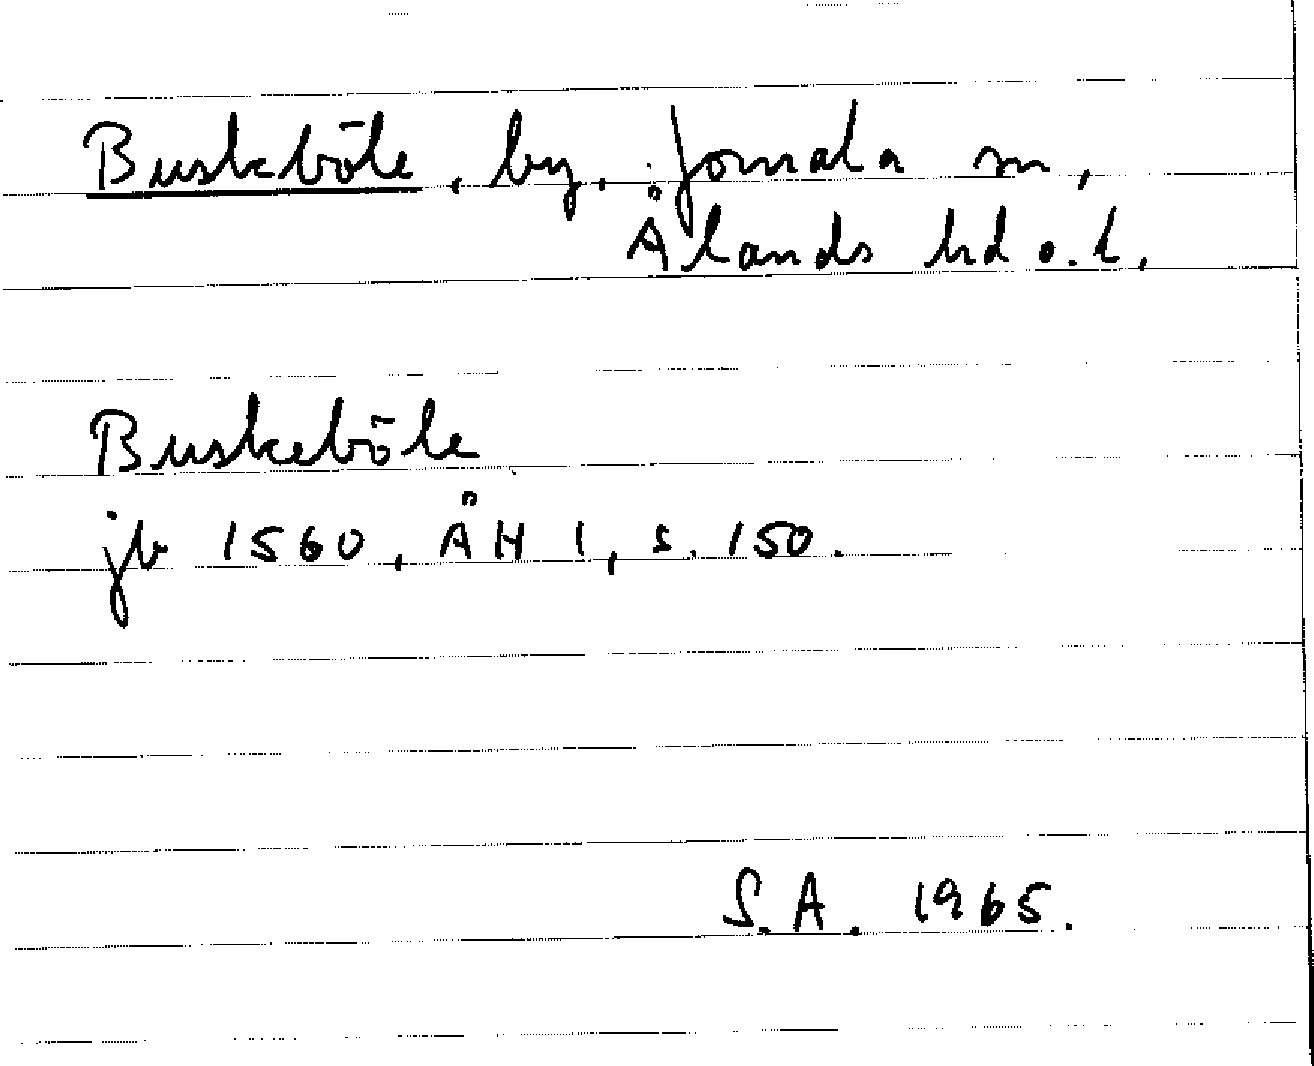 Buskböle, by, Jomala sn,
Ålands hd o. l.
Buskeböle
jb 1560, ÅH 1, s. 150.
S.A. 1965.